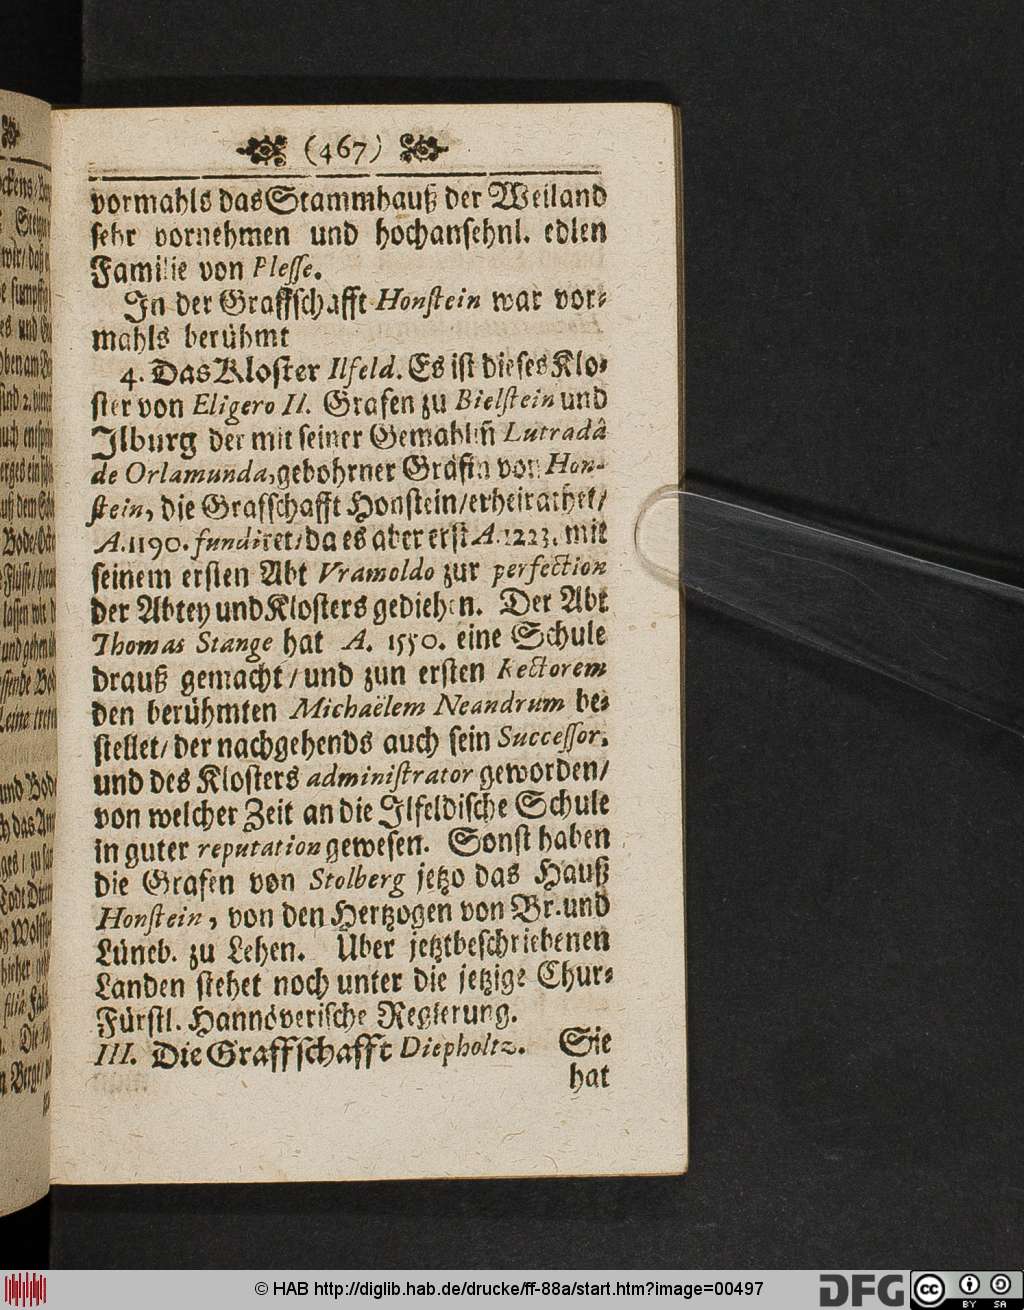 (467)
vormahls das Stammhauß der Weiland
sehr vornehmen und hochansehnl. edlen
Familie von Plesse.
In der Graffschafft Honstein war vor-
mahls berühmt
4. Das Kloster Ilfeld. Es ist dieses Klo-
ster von Eligero II. Grafen zu Bielstein und
Ilburg der mit seiner Gemahlin̄ Lutradâ
de Orlamunda, gebohrner Gräfin von Hon-
stein, die Grafschafft Honstein/ erheirathet/
A. 1190. fundiret/ da es aber erst A. 1223. mit
seinem ersten Abt Vramoldo zur perfection
der Abtey und Klosters gediehen. Der Abt
Thomas Stange hat A. 1550. eine Schule
drauß gemacht/ und zun ersten Rectorem
den berühmten Michaëlem Neandrum be-
stellet/ der nachgehends auch sein Successor,
und des Klosters administrator geworden/
von welcher Zeit an die Ilfeldische Schule
in guter reputation gewesen. Sonst haben
die Grafen von Stolberg jetzo das Hauß
Honstein, von den Hertzogen von Br. und
Lüneb. zu Lehen. Über jetztbeschriebenen
Landen stehet noch unter die jetzige Chur-
Fürstl. Hannöverische Regierung.
III. Die Graffschafft Diepholtz. Sie
hat
© HAB http://diglib.hab.de/drucke/ff-88a/start.htm?image=00497
DFG
cc
BY SA